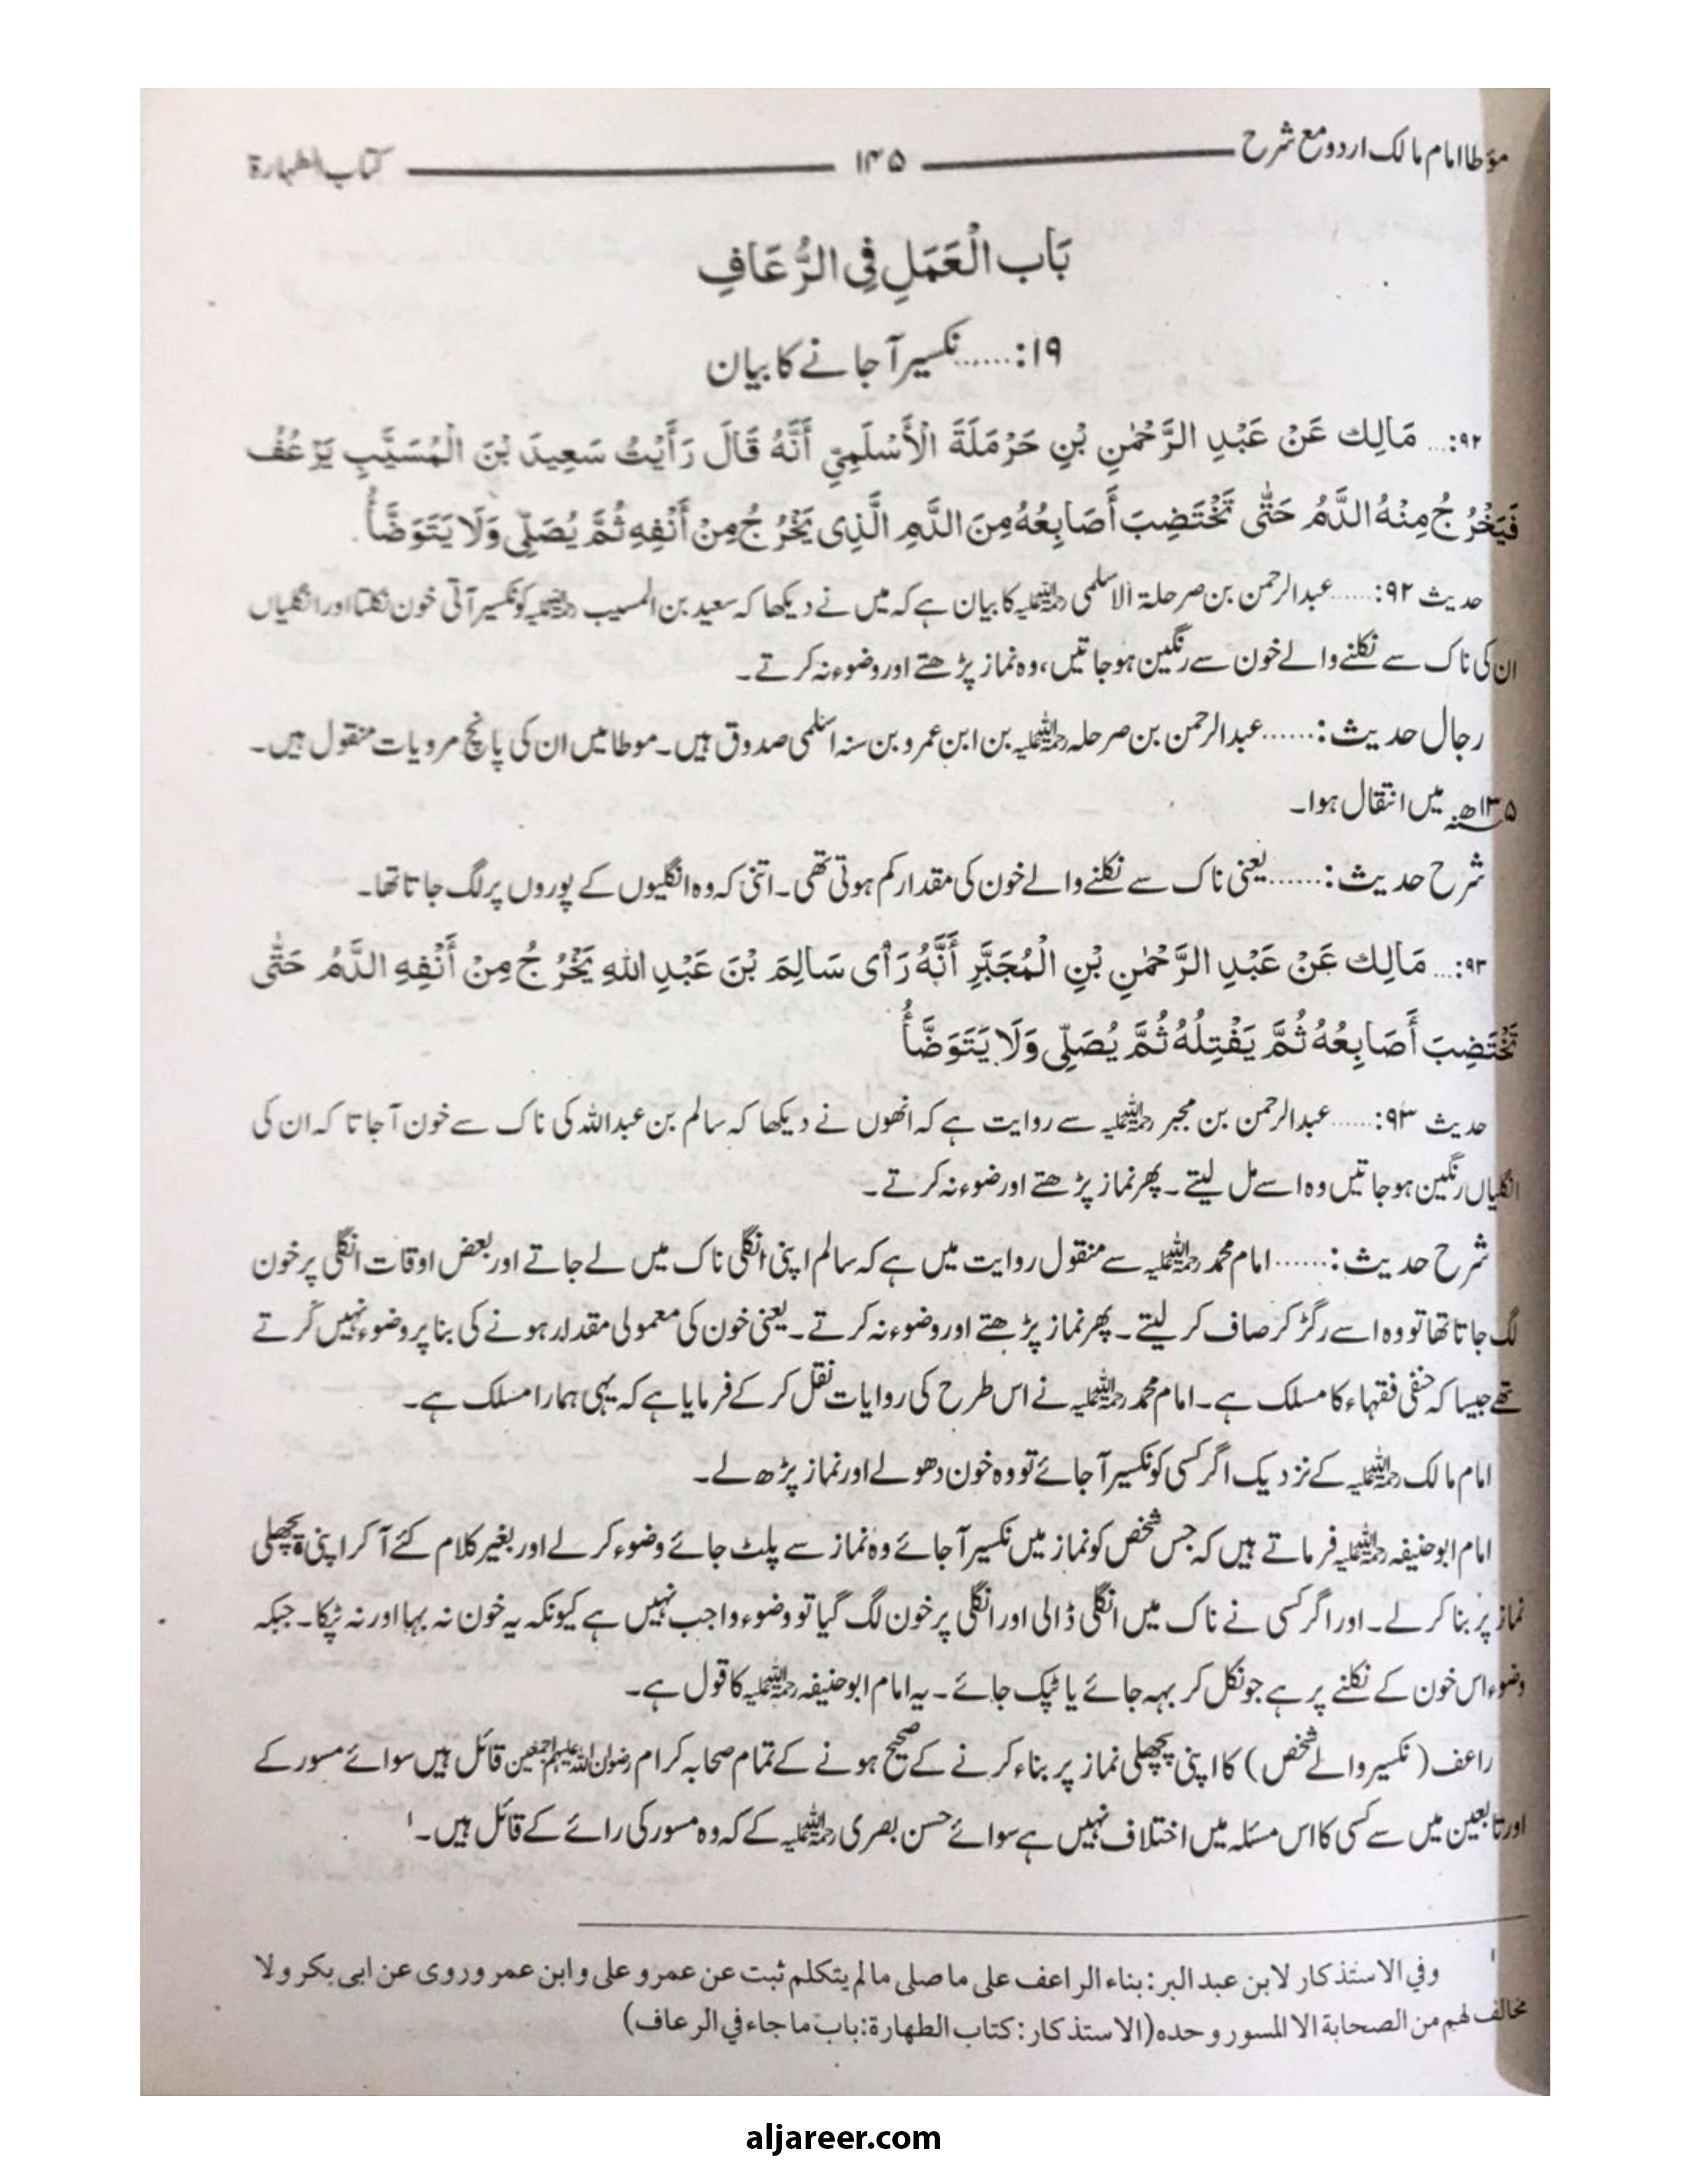 مؤطا امام مالک اردو مع شرح ۱۴۵ کتاب الطہارۃ
بَاب الْعَمَلِ فِی الرُّعَافِ
۱۹:......نکسیر آ جانے کا بیان
۹۲:... مَالِك عَنْ عَبْدِ الرَّحْمٰنِ بْنِ حَرْمَلَةَ الْأَسْلَمِيِّ أَنَّهُ قَالَ رَأَيْتُ سَعِيدَ بْنَ الْمُسَيَّبِ يَرْعُفُ
فَيَخْرُجُ مِنْهُ الدَّمُ حَتّٰى تَخْتَضِبَ أَصَابِعُهُ مِنَ الدَّمِ الَّذِى يَخْرُجُ مِنْ أَنْفِهِ ثُمَّ يُصَلِّى وَلَا يَتَوَضَّأُ.
حدیث ۹۲:......عبدالرحمن بن صرحلۃ الاسلمی رحمۃ اللہ علیہ کا بیان ہے کہ میں نے دیکھا کہ سعید بن المسیب رحمۃ اللہ علیہ کو نکسیر آتی خون نکلتا اور انگلیاں
ان کی ناک سے نکلنے والے خون سے رنگین ہو جاتیں، وہ نماز پڑھتے اور وضوء نہ کرتے۔
رجال حدیث:......عبدالرحمن بن صرحلہ رحمۃ اللہ علیہ بن ابن عمرو بن سنہ اسلمی صدوق ہیں۔ موطا میں ان کی پانچ مرویات منقول ہیں۔
۱۳۵ھ میں انتقال ہوا۔
شرح حدیث:......یعنی ناک سے نکلنے والے خون کی مقدار کم ہوتی تھی۔ اتنی کہ وہ انگلیوں کے پوروں پر لگ جاتا تھا۔
۹۳:... مَالِك عَنْ عَبْدِ الرَّحْمٰنِ بْنِ الْمُجَبَّرِ أَنَّهُ رَأَى سَالِمَ بْنَ عَبْدِ اللهِ يَخْرُجُ مِنْ أَنْفِهِ الدَّمُ حَتّٰى
تَخْتَضِبَ أَصَابِعُهُ ثُمَّ يَفْتِلُهُ ثُمَّ يُصَلِّى وَلَا يَتَوَضَّأُ
حدیث ۹۳:......عبدالرحمن بن مجبر رحمۃ اللہ علیہ سے روایت ہے کہ انھوں نے دیکھا کہ سالم بن عبداللہ کی ناک سے خون آ جاتا کہ ان کی
انگلیاں رنگین ہو جاتیں وہ اسے مل لیتے۔ پھر نماز پڑھتے اور ضوء نہ کرتے۔
شرح حدیث:......امام محمد رحمۃ اللہ علیہ سے منقول روایت میں ہے کہ سالم اپنی انگلی ناک میں لے جاتے اور بعض اوقات انگلی پر خون
لگ جاتا تھا تو وہ اسے رگڑ کر صاف کر لیتے۔ پھر نماز پڑھتے اور وضوء نہ کرتے۔ یعنی خون کی معمولی مقدار ہونے کی بنا پر وضوء نہیں کرتے
تھے جیسا کہ حنفی فقہاء کا مسلک ہے۔ امام محمد رحمۃ اللہ علیہ نے اس طرح کی روایات نقل کر کے فرمایا ہے کہ یہی ہمارا مسلک ہے۔
امام مالک رحمۃ اللہ علیہ کے نزدیک اگر کسی کو نکسیر آ جائے تو وہ خون دھولے اور نماز پڑھ لے۔
امام ابو حنیفہ رحمۃ اللہ علیہ فرماتے ہیں کہ جس شخص کو نماز میں نکسیر آ جائے وہ نماز سے پلٹ جائے وضوء کر لے اور بغیر کلام کئے آ کر اپنی پچھلی
نماز پر بنا کر لے۔ اور اگر کسی نے ناک میں انگلی ڈالی اور انگلی پر خون لگ گیا تو وضوء واجب نہیں ہے کیونکہ یہ خون نہ بہا اور نہ ٹپکا۔ جبکہ
وضوء اس خون کے نکلنے پر ہے جو نکل کر بہہ جائے یا ٹپک جائے۔ یہ امام ابو حنیفہ رحمۃ اللہ علیہ کا قول ہے۔
راعف (نکسیر والے شخص) کا اپنی پچھلی نماز پر بناء کرنے کے صحیح ہونے کے تمام صحابہ کرام رضوان اللہ علیہم اجمعین قائل ہیں سوائے مسور کے
اور تابعین میں سے کسی کا اس مسئلہ میں اختلاف نہیں ہے سوائے حسن بصری رحمۃ اللہ علیہ کے کہ وہ مسور کی رائے کے قائل ہیں۔ ۱
۱ وفي الاستذكار لابن عبد البر: بناء الراعف على ما صلى ما لم يتكلم ثبت عن عمر و على وابن عمر وروى عن ابى بكر ولا
مخالف لهم من الصحابة الا المسور وحده (الاستذكار: كتاب الطهارة: باب ما جاء في الرعاف)
aljareer.com